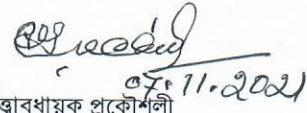 07.11.2021
ত্ত্বাবধায়ক প্রকৌশলী